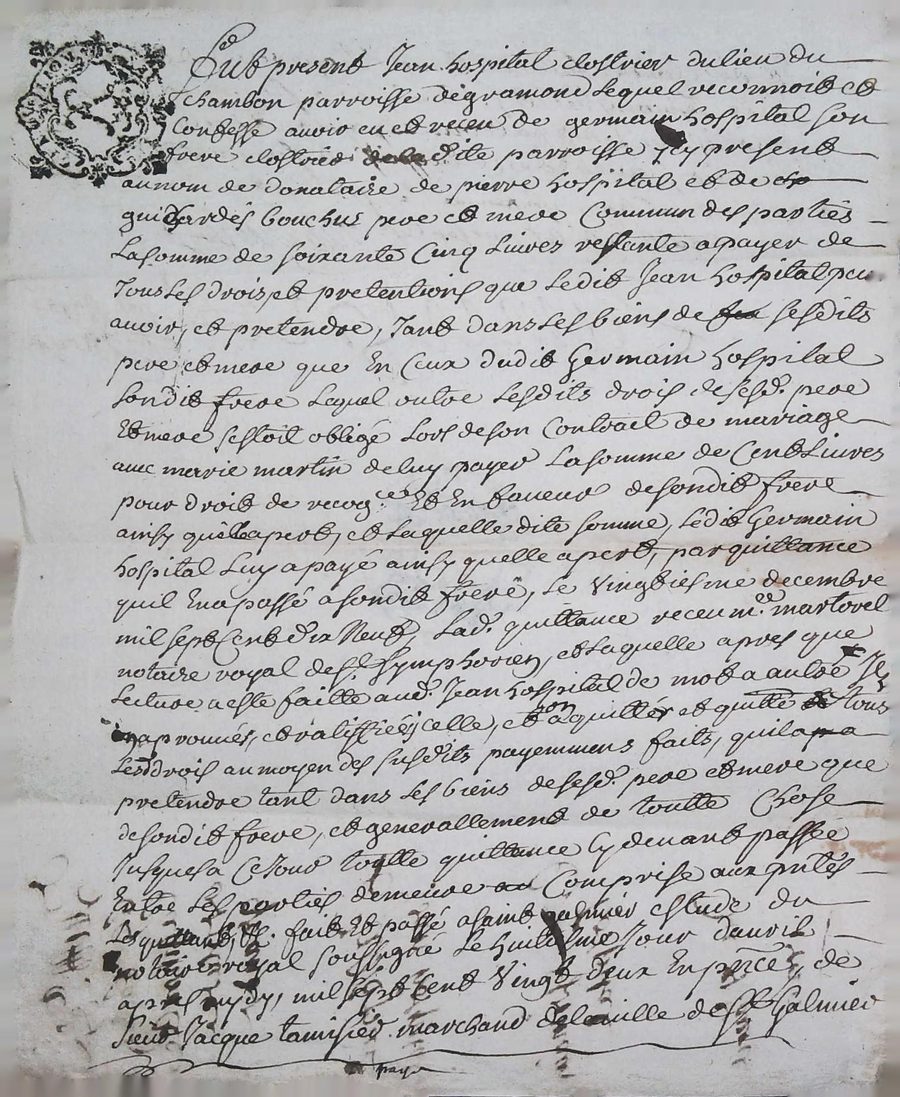 Fut present Jean hospital clostrier du lieu du
chambon parroisse de gramond Lequel reconnoit et
Confesse auoir eu et receu de germain hospital son
frere clostrier de la dite parroisse icy present
au nom de donataire de pierre hospital et de
guichardes bouchus pere et mere Commun des partiés
La somme de soixante Cinq Liures restante a payer de
Tous Les drois et pretentions que Le dit Jean hospital peu
auoir, et pretendre, Tant dans Les biens de ses dits
pere et mere que En Ceux dudit Germain hospital
son dit frere Lequel outre Lesdits drois de sesd. pere
Et mere sestoit obligé Lors de son Contract de mariage
auec marie martin de luy payer La somme de Cent Liures
pour droit de recog.ce Et En faueur de son dit frere
ainsy quil apert, et Laquelle dite somme, Le dit Germain
hospital Luy a payé ainsy quelle apert, par quittance
quil En a passé a son dit frere, Le Vingtiesme decembre
mil sept Cent dix Neuf, Lad. quittance receu me. martorel
notaire royal de St. Symphorien, et Laquelle apres que
Lecture a este faitte aud. Jean hospital de mot a autre Il
aprouués, et ratiffiée icelle, et en aquitter et quitte tous
Lesd drois au moyen des susdits payemmens faits, quil a
pretendre tant dans Les biens de sesd. pere et mere que
de son dit frere, et generallement de toutte Chose
Jusques a Ce Jour toutte quittance Cy deuant passée
Entre Les parties demeure Comprise aux pntes
Les quittant, &c. fait Et passé a saint galmier estude du
notaire royal soussigne Le huitiesme Jour dauril
apres mydy, mil sept cent Vingt deux En pnce, de
sieur Jacque tamisier marchand de la uille de St. Galmier